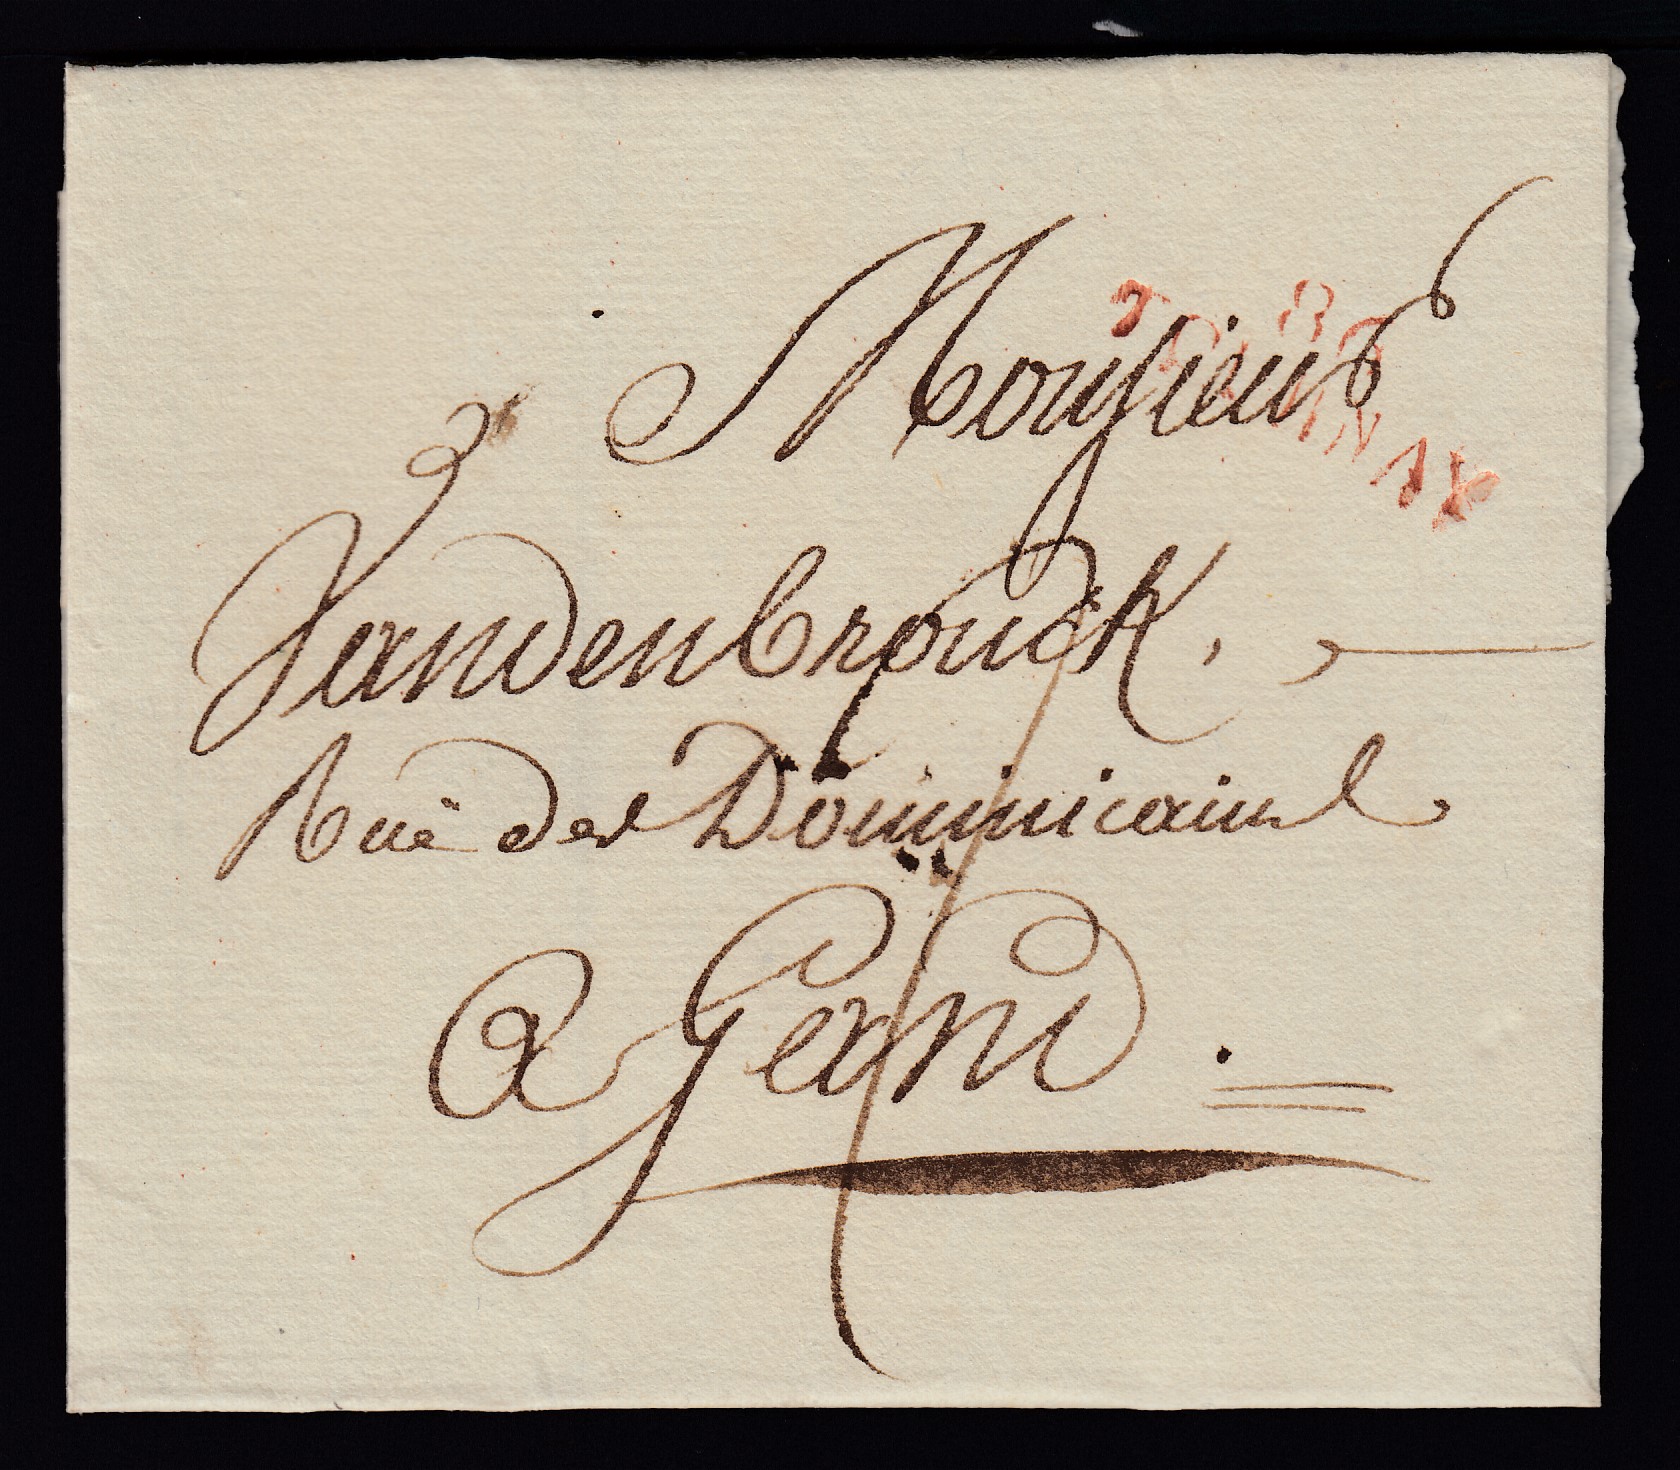 Monsieur
Vandenbrouck,
Ruë des Dominicains
a Gand.
TOURNAY